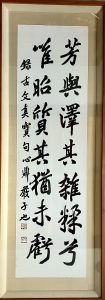 芳與澤其雜糅兮
唯昭質其猶未虧
錄古文真寶句心鼎嚴子也